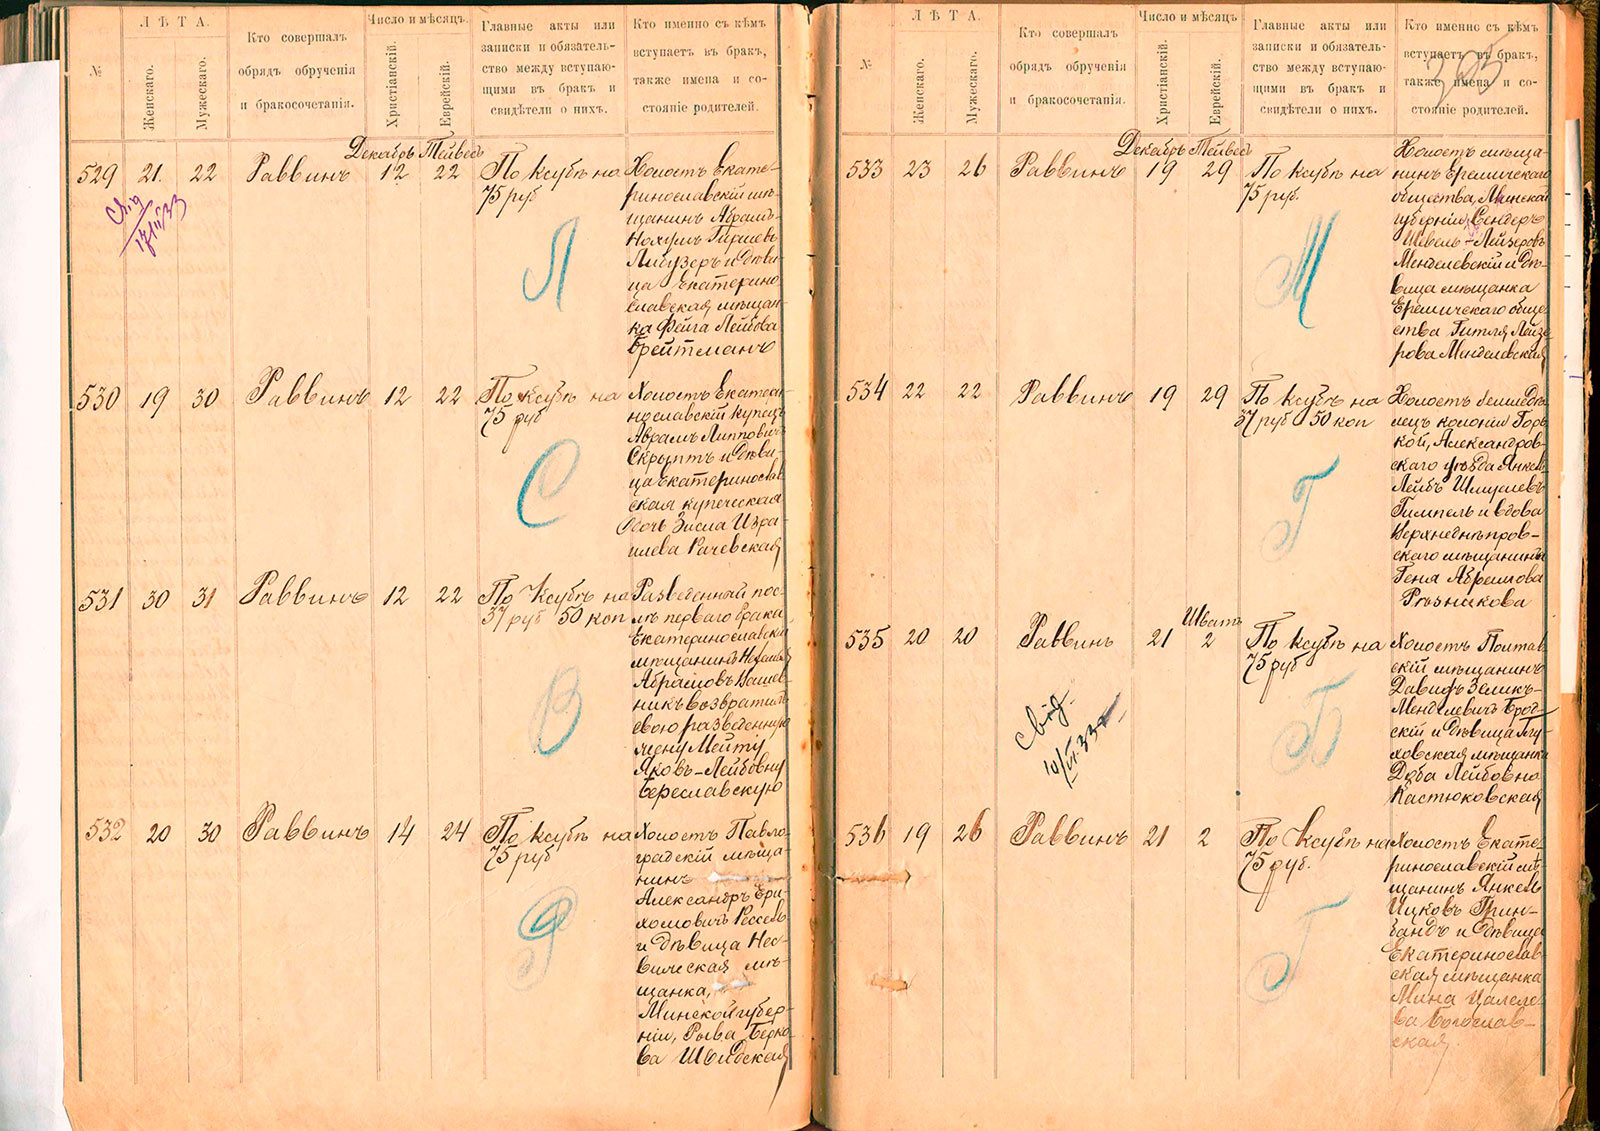 №
ЛѢТА.
Женскаго.
Мужескаго.
Кто совершалъ
обрядъ обрученія
и бракосочетанія.
Число и мѣсяцъ.
Христіанскій.
Еврейскій.
Главные акты или
записки и обязатель-
ство между вступаю-
щими въ бракъ и
свидѣтели о нихъ.
Кто именно съ кѣмъ
вступаетъ въ бракъ,
также имена и со-
стояніе родителей.
Декабрь Тейвесъ
529 21. 22 Раввинъ 12 22 По ксубѣ на
75 руб
Холостъ Екате-
ринославскій мѣ-
щанинъ Абрамъ-
Нохумъ Гиршевъ
и дѣви-
ца Екатерино
славская мѣщан-
ка Фейга Лейбова
Брейтманъ
Л
530 19 30 Раввинъ 12 22 По ксубѣ на
75 руб
Холостъ Екатери-
нославскій купецъ
Абрамъ Липповичъ
Скрыптъ и дѣви-
ца Екатеринослав-
ская купеческая
дочь Зисла Изра-
илева Рачевская
С
531 30 31 Раввинъ 12 22 По Ксубѣ на
37 руб 50 коп
Разведенный пос-
лѣ перваго брака
Екатеринославскій
мѣщанинъ
Абрамовъ Вашев-
никъ возвратилъ
свою разведенную
жену Мейту
Яковъ-Лейбовну
Береславскую
В
532 20 30 Раввинъ 14 24 По ксубѣ на
75 руб
Холостъ Павло-
градскій мѣща-
нинъ
Александръ Ери-
холовичъ Рессель
и дѣвица Нес-
вическая мѣ-
щанка,
Минской губер-
ніи, Рыва Берко-
ва Швидская
Р
№
ЛѢТА.
Женскаго.
Мужескаго.
Кто совершалъ
обрядъ обрученія
и бракосочетанія.
Число и мѣсяцъ.
Христіанскій.
Еврейскій.
Главные акты или
записки и обязатель-
ство между вступаю-
щими въ бракъ и
свидѣтели о нихъ.
Кто именно съ кѣмъ
вступаетъ въ бракъ,
также имена и со-
стояніе родителей.
Декабрь Тейвесъ
533 23 26 Раввинъ 19 29 По ксубѣ на
75 руб.
Холостъ мѣща-
нинъ Еремичскаго
общества, Минской
губерніи, Сендеръ
Шевель-Лейзеровъ
Менделевскій и дѣ-
вица мѣщанка
Еремичскаго обще
ства Гитля Лейзе
рова Менделевская
М
534 22 22 Раввинъ 19 29 По ксубѣ на
37 руб 50 коп
Холостъ земледѣ-
лецъ колоніи Горь
кой, Александров-
скаго уѣзда Янкель
Лейбъ Шмулевъ
Гимпель и вдова
Верхнеднѣпров-
скаго мѣщанина
Геня Абрамова
Рѣзникова
Г
Шватъ
535 20 20 Раввинъ 21 2 По ксубѣ на
75 руб
Холостъ Полтав-
скій мѣщанинъ
Давидъ Зеликъ-
Менделевичъ Брод-
скій и дѣвица Глу-
ховская мѣщанка
Доба Лейбовна
Кастюковская
Б
536 19 26 Раввинъ 21 2 По Ксубѣ на
75 руб.
Холостъ Екате-
ринославскій мѣ-
щанинъ Янкель
Ицковъ Грин-
бандъ и дѣвица
Екатеринослав
ская мѣщанка
Мина Цалело-
ва Богослав-
ская.
Г